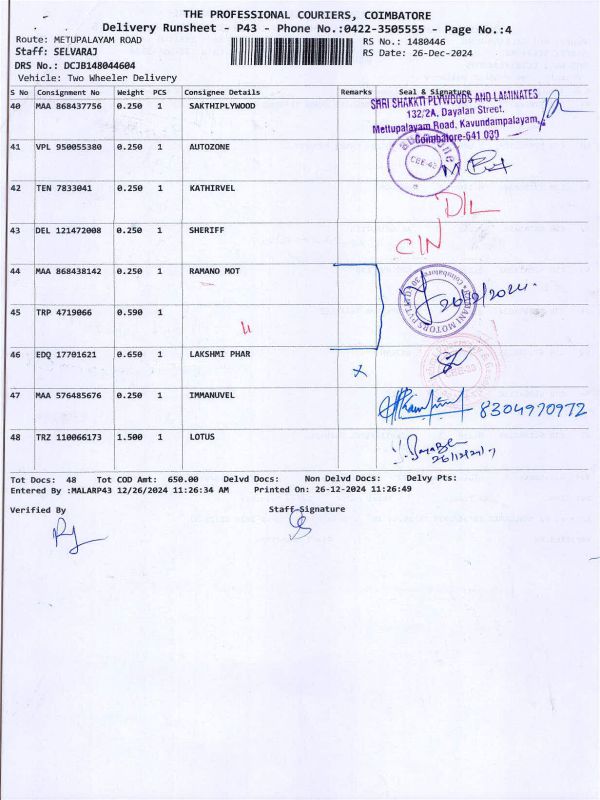 THE PROFESSIONAL COURIERS, COIMBATORE
Delivery Runsheet - P43 - Phone No.:0422-3505555 - Page No.:4
Route: METUPALAYAM ROAD
RS No.: 1480446
Staff: SELVARAJ
RS Date: 26-Dec-2024
DRS No.: DCJB148044604
Vehicle: Two Wheeler Delivery
S No Consignment No Weight PCS Consignee Details Remarks Seal & Signature
40 MAA 868437756 0.250 1 SAKTHIPLYWOOD
SHRI SHAKKTI PLYWOODS AND LAMINATES
132/2A, Dayalan Street,
Mettupalayam Road, Kavundampalayam,
Coimbatore-641 030
41 VPL 950055380 0.250 1 AUTOZONE
CBE-43
42 TEN 7833041 0.250 1 KATHIRVEL
D/L
43 DEL 121472008 0.250 1 SHERIFF
C/N
44 MAA 868438142 0.250 1 RAMANO MOT
26/12/2024.
45 TRP 4719066 0.590 1
46 EDQ 17701621 0.650 1 LAKSHMI PHAR
x
47 MAA 576485676 0.250 1 IMMANUVEL
8304970972
48 TRZ 110066173 1.500 1 LOTUS
Tot Docs: 48 Tot COD Amt: 650.00 Delvd Docs: Non Delvd Docs: Delvy Pts:
Entered By :MALARP43 12/26/2024 11:26:34 AM Printed On: 26-12-2024 11:26:49
Verified By
Staff Signature